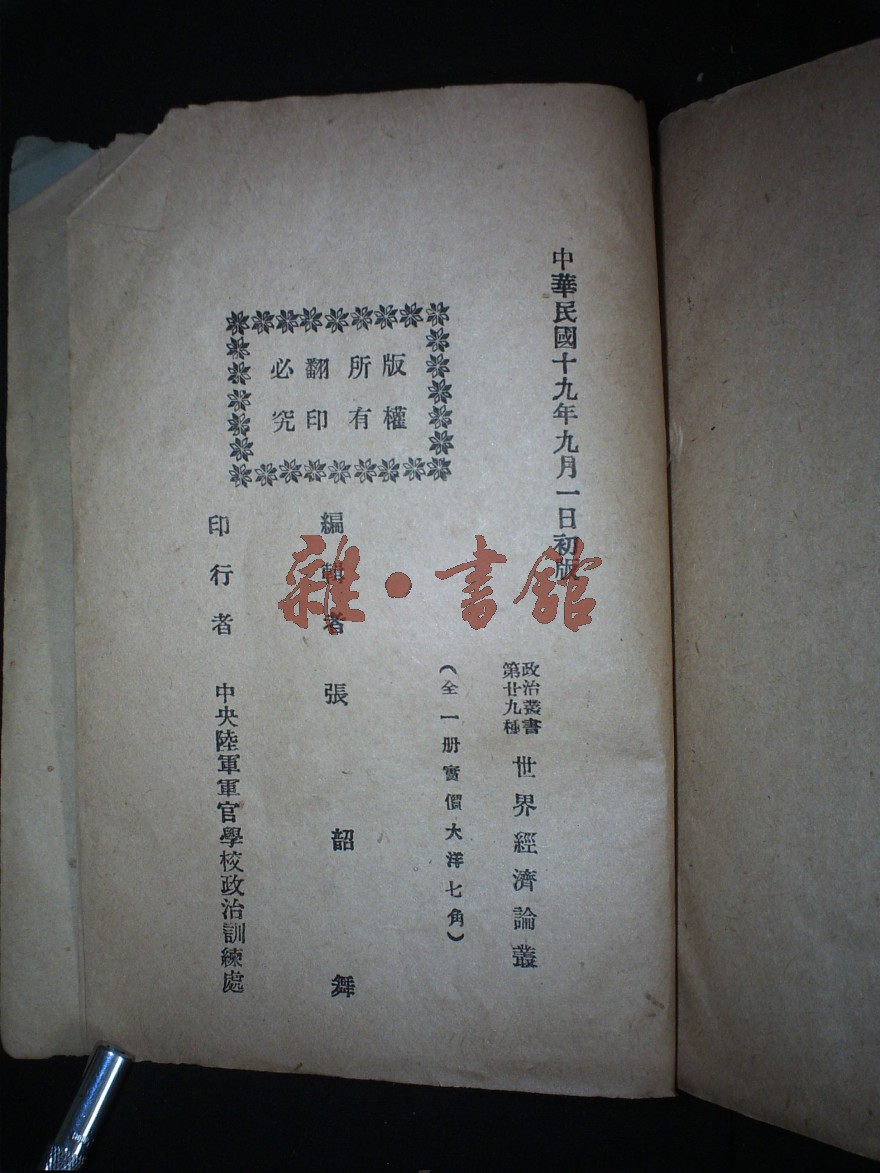 中華民國十九年九月一日初版
政治叢書
第廿九種
世界經濟論叢
（全一册實價大洋七角）
版權
所有
翻印
必究
編輯者 張韶舞
印行者 中央陸軍軍官學校政治訓練處
雜·書館